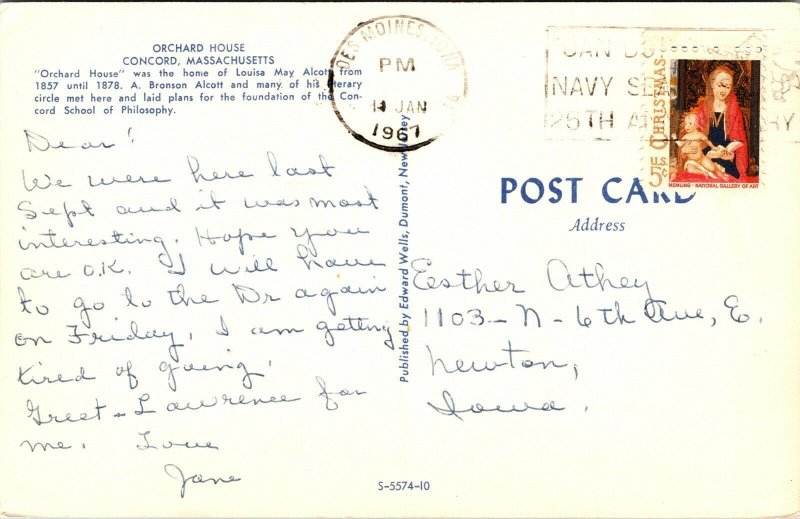 ORCHARD HOUSE
CONCORD, MASSACHUSETTS
"Orchard House" was the home of Louisa May Alcott from
1857 until 1878. A. Bronson Alcott and many of his literary
circle met here and laid plans for the foundation of the Con-
cord School of Philosophy.
DES MOINES, IOWA
PM
11 JAN
1967
NAVY
25TH
CHRISTMAS
U.S. 5¢
MEMLING - NATIONAL GALLERY OF ART
Dear!
We were here last
Sept and it was most
interesting. Hope you
are O.K. I will have
to go to the Dr again
on Friday, I am getting
tired of going,
Greet - Lawrence for
me. Love
Jane
Published by Edward Wells, Dumont, New Jersey
POST CARD
Address
Eesther Athey
1103 - N - 6th Ave, E.
Newton,
Iowa.
S-5574-10